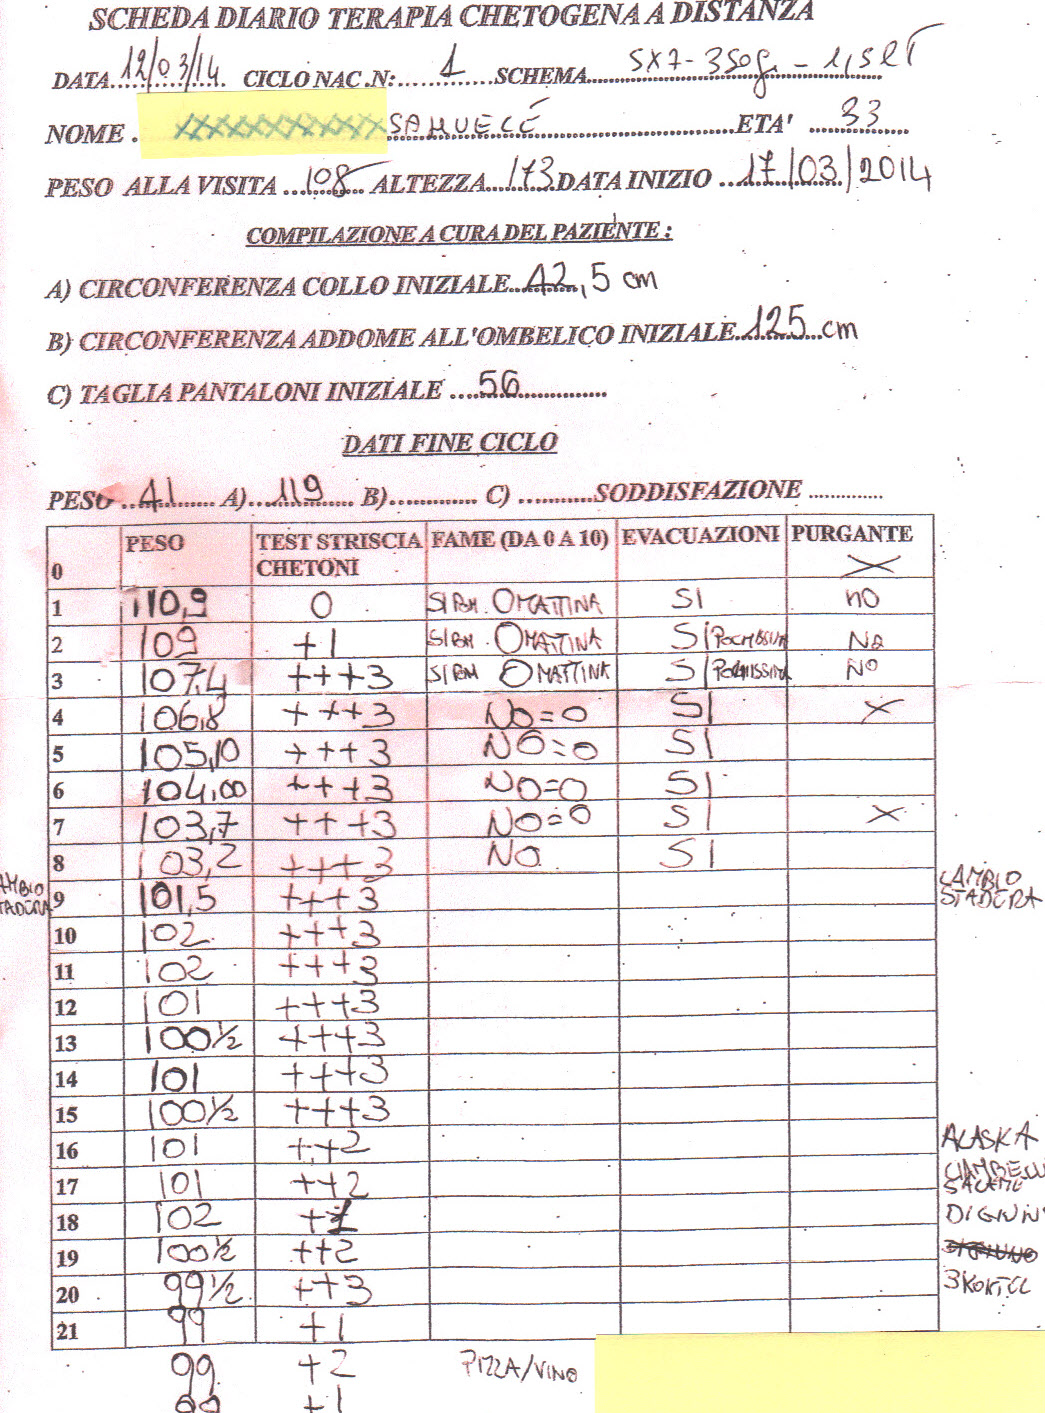 SCHEDA DIARIO TERAPIA CHETOGENA A DISTANZA
DATA 12/03/14 CICLO NAC .N: 1 SCHEMA 5X7-350g - 1,5LT
NOME . SAMUELE ETA' 33
PESO ALLA VISITA 108 ALTEZZA 173 DATA INIZIO 17/03/2014
COMPILAZIONE A CURA DEL PAZIENTE :
A) CIRCONFERENZA COLLO INIZIALE 42,5 cm
B) CIRCONFERENZA ADDOME ALL'OMBELICO INIZIALE 125 cm
C) TAGLIA PANTALONI INIZIALE 56
DATI FINE CICLO
PESO 41 A) 119 B) C) SODDISFAZIONE
0 PESO TEST STRISCIA CHETONI FAME (DA 0 A 10) EVACUAZIONI PURGANTE X
1 110,9 0 SI PM. 0 MATTINA SI NO
2 109 +1 SI PM. 0 MATTINA SI POCHISSIMA NO
3 107,4 +++3 SI PM 0 MATTINA SI POCHISSIMA NO
4 106,8 +++3 NO=0 SI X
5 105,10 +++3 NO=0 SI
6 104,00 +++3 NO=0 SI
7 103,7 +++3 NO=0 SI X
8 103,2 +++3 NO SI
9 101,5 +++3 CAMBIO STADERA
10 102 +++3
11 102 +++3
12 101 +++3
13 100½ +++3
14 101 +++3
15 100½ +++3
16 101 ++2 ALASKA
17 101 ++2 CIAMBELL SALAME
18 102 +1 DIGIUN
19 100½ ++2 DIGIUNO
20 99½ ++3
21 99 +1
99 +2 PIZZA/VINO
99 +1